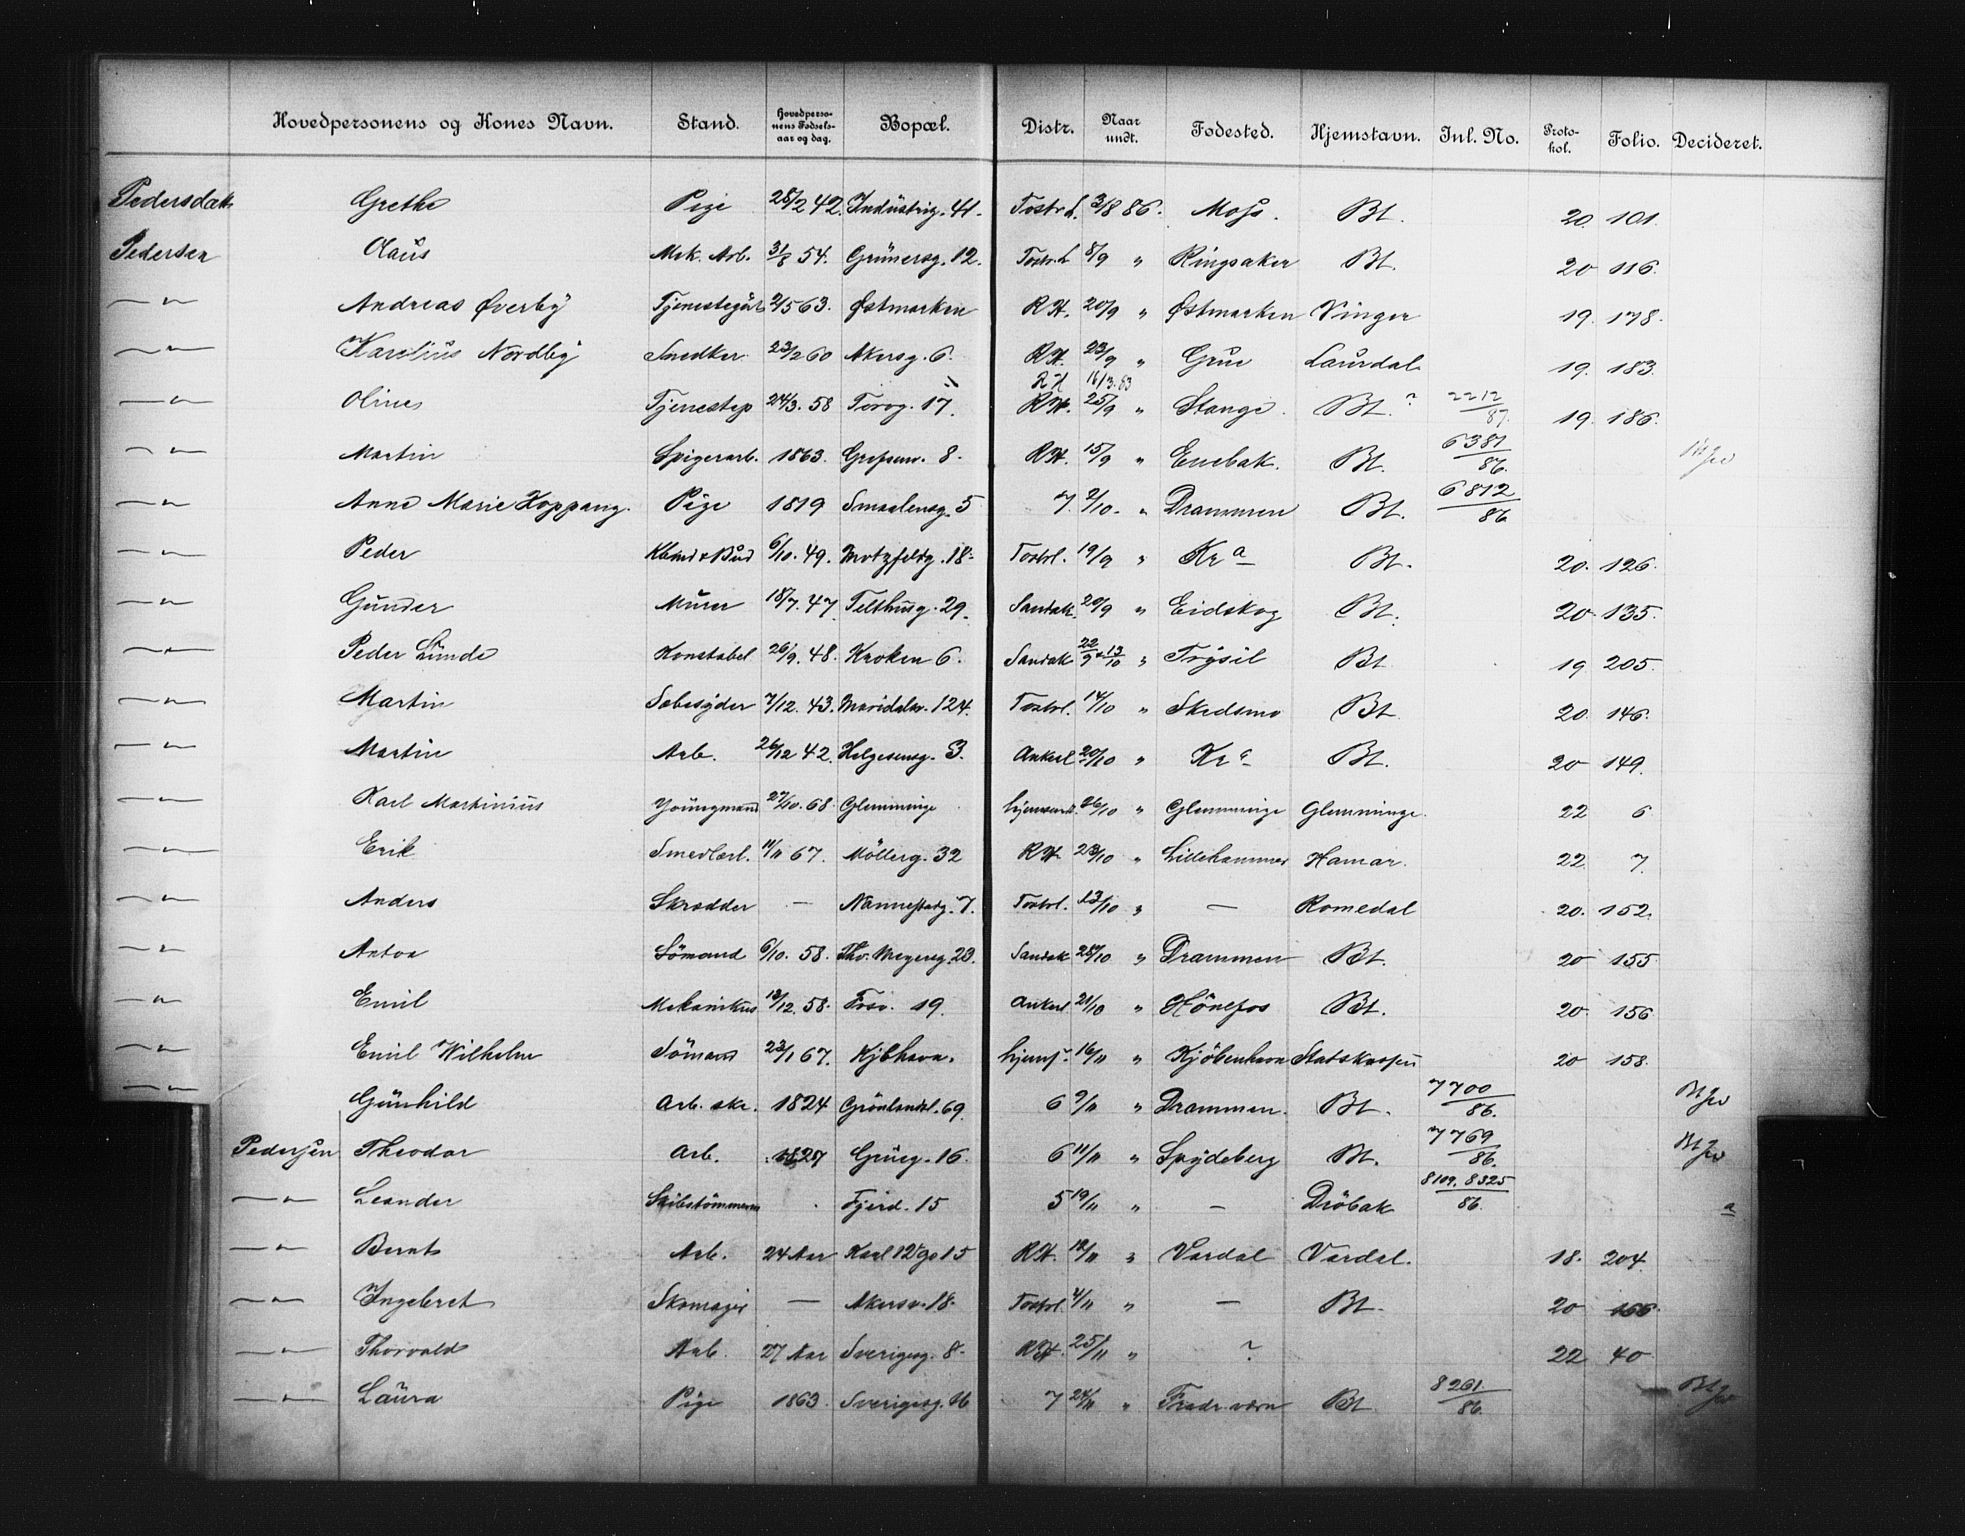 Hovedpersonens og Kones Navn. Stand. Hovedpersonens Fødselsaar og dag. Bopæl. Distr. Naar undt. Fødested. Hjemstavn. Inl. No. Protokol. Folio. Decideret.
Pedersdatt Grethe Pige 28/2 42. Industrig. 41. Tostrl. 3/8 86. Moss. Bt. 20. 101.
Pedersen Claus Mek. Arb. 31/8 54. Grünersg. 12. Tostrl 8/9 " Ringsaker Bt. 20 116.
—"— Andreas Øverby Tjenestegut 2/5 63. Østmarken R.H. 20/9 " Østmarken Vinger 19. 178.
—"— Karelius Nordby Snedker 23/2 60 Akersg. 6. R.H. 23/9 " Grue Laurdal 19. 183.
R H 16/3.83
—"— Oline Tjenestep 24/3. 58 Torvg. 17. R.H. 25/9 " Stange. Bt. ? 2212/87. 19. 186.
—"— Martin Spigerarb. 1863. Grefsenv. 8. R.H. 15/9 " Enebak. Bt. 6381/86.
—"— Anne Marie Koppang. Pige 1819 Smaalensg. 5 7. 2/10. " Drammen Bt. 6812/86
—"— Peder 6/10. 49. Motzfeldtg. 18. Tostrl. 19/9 " Kra Bt. 20. 126.
—"— Gunder Murer 18/7. 47. Telthusg. 29. Sandak. 20/9 " Eidskog Bt. 20. 135.
—"— Peder Lunde Konstabel 26/9. 48. Kroken 6. Sandak 22/9 & 13/10 " Trysil Bt 19 205.
—"— Martin Sæbesyder 7/12. 43. Maridalsv. 124. Tostrl. 14/10 " Skedsmo Bt 20. 146.
—"— Martin Arb. 26/12 42. Helgesensg. 3. Ankerl 20/10 " Kra Bt. 20 149.
—"— Karl Martinius Youngmand 27/10. 68. Glemminge hjemsendt. 26/10 " Glemminge Glemminge. 22 6
—"— Erik Smedlærl. 11/11 67. Möllerg. 32 R.H. 23/10 " Lillehammer Hamar. 22. 7.
—"— Anders Skrædder — Nannestadg. 7. Tostrl. 13/10 " — Romedal 20. 152.
—"— Anton Sömand 6/10. 58. Thv. Meyersg. 23. Sandak 28/10 " Drammen Bt. 20 155
—"— Emil Mekanikus 12/12. 58. Fosv. 19. Ankerl 21/10 " Hönefos Bt. 20. 156
—"— Emil Wilhelm Sömand 23/1 67. Kjbhavn. hjemf. 16/11 " Kjöbenhavn Statskassen 20 158.
—"— Gunhild Arb. ske. 1824 Grönlandsl. 69. 6 9/11 " Drammen. Bt. 7700/86.
Pedersen Theodor Arb. 1827 Grüeg. 16. 6 11/11 " Spydeberg Bt. 7769/86.
—"— Leander Skibstömmerm . Fjerd. 15 5 19/11 " — Dröbak 8109. 8325/86. a
—"— Bernt Arb. 24 Aar Karl 12tes g. 15 R.H. 12/11 " Vardal Vardal. 18. 204.
—"— Ingebret Skomager — Akersv. 18. Tostrl. 4/11 " — Bt. 20 166.
—"— Thorvald Arb. 27 Aar Sverigesg. 8. R.H. 25/11 " ? 22 40
—"— Laura Pige 1863. Sverigesg. 16 7 24/11 " Fredr.værn Bt 8261/86.